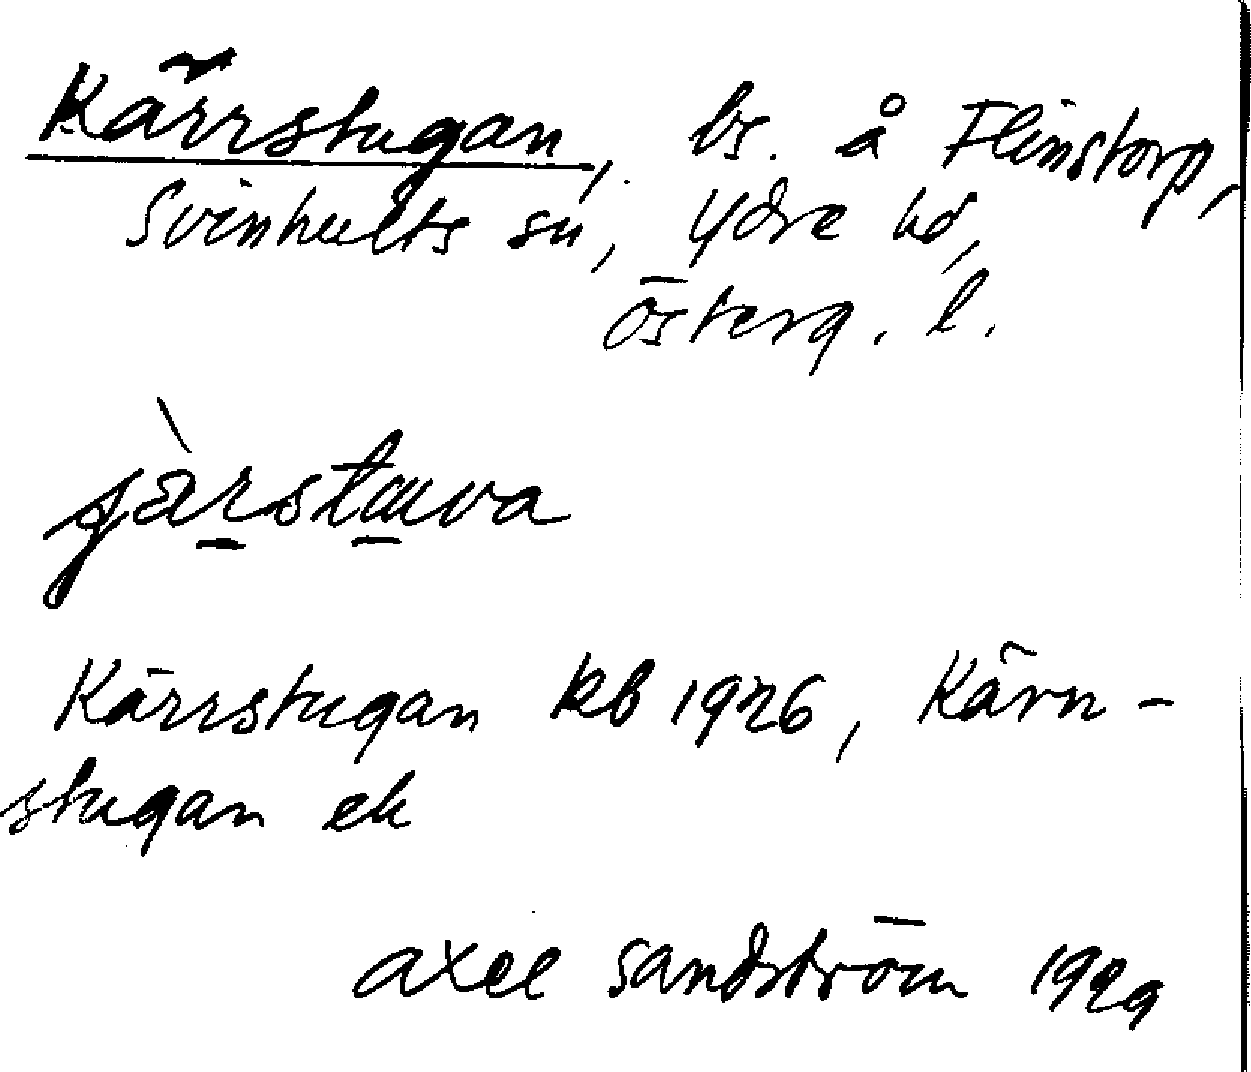 Kärrstugan, bs. å Flinstorp,
Svinhults sn, Ydre hd,
Österg. l.
jàrstuva
Kärrstugan kb 1926, Kärn-
stugan ek
Axel Sandström 1929